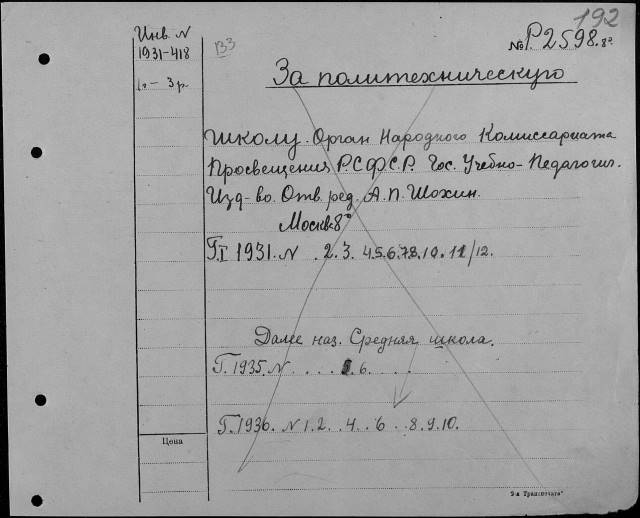 192
Инв. N
1931-418
1 - 3 р.
В3
№ Р.2598.8°
За политехническую
школу. Орган Народного Комиссариата
Просвещения Р.С.Ф.С.Р. Гос. Учебно-Педагогич.
Изд-во. Отв. ред. А.П. Шохин.
Москв. 8°
Г.I 1931. N . 2. 3. 4.5.6.7.8.10.11/12.
Далее наз. Средняя школа.
Г. 1935. N . . . . 6. . . .
Г. 1936. N 1. 2. . 4. . 6 . . 8. 9. 10.
Цена